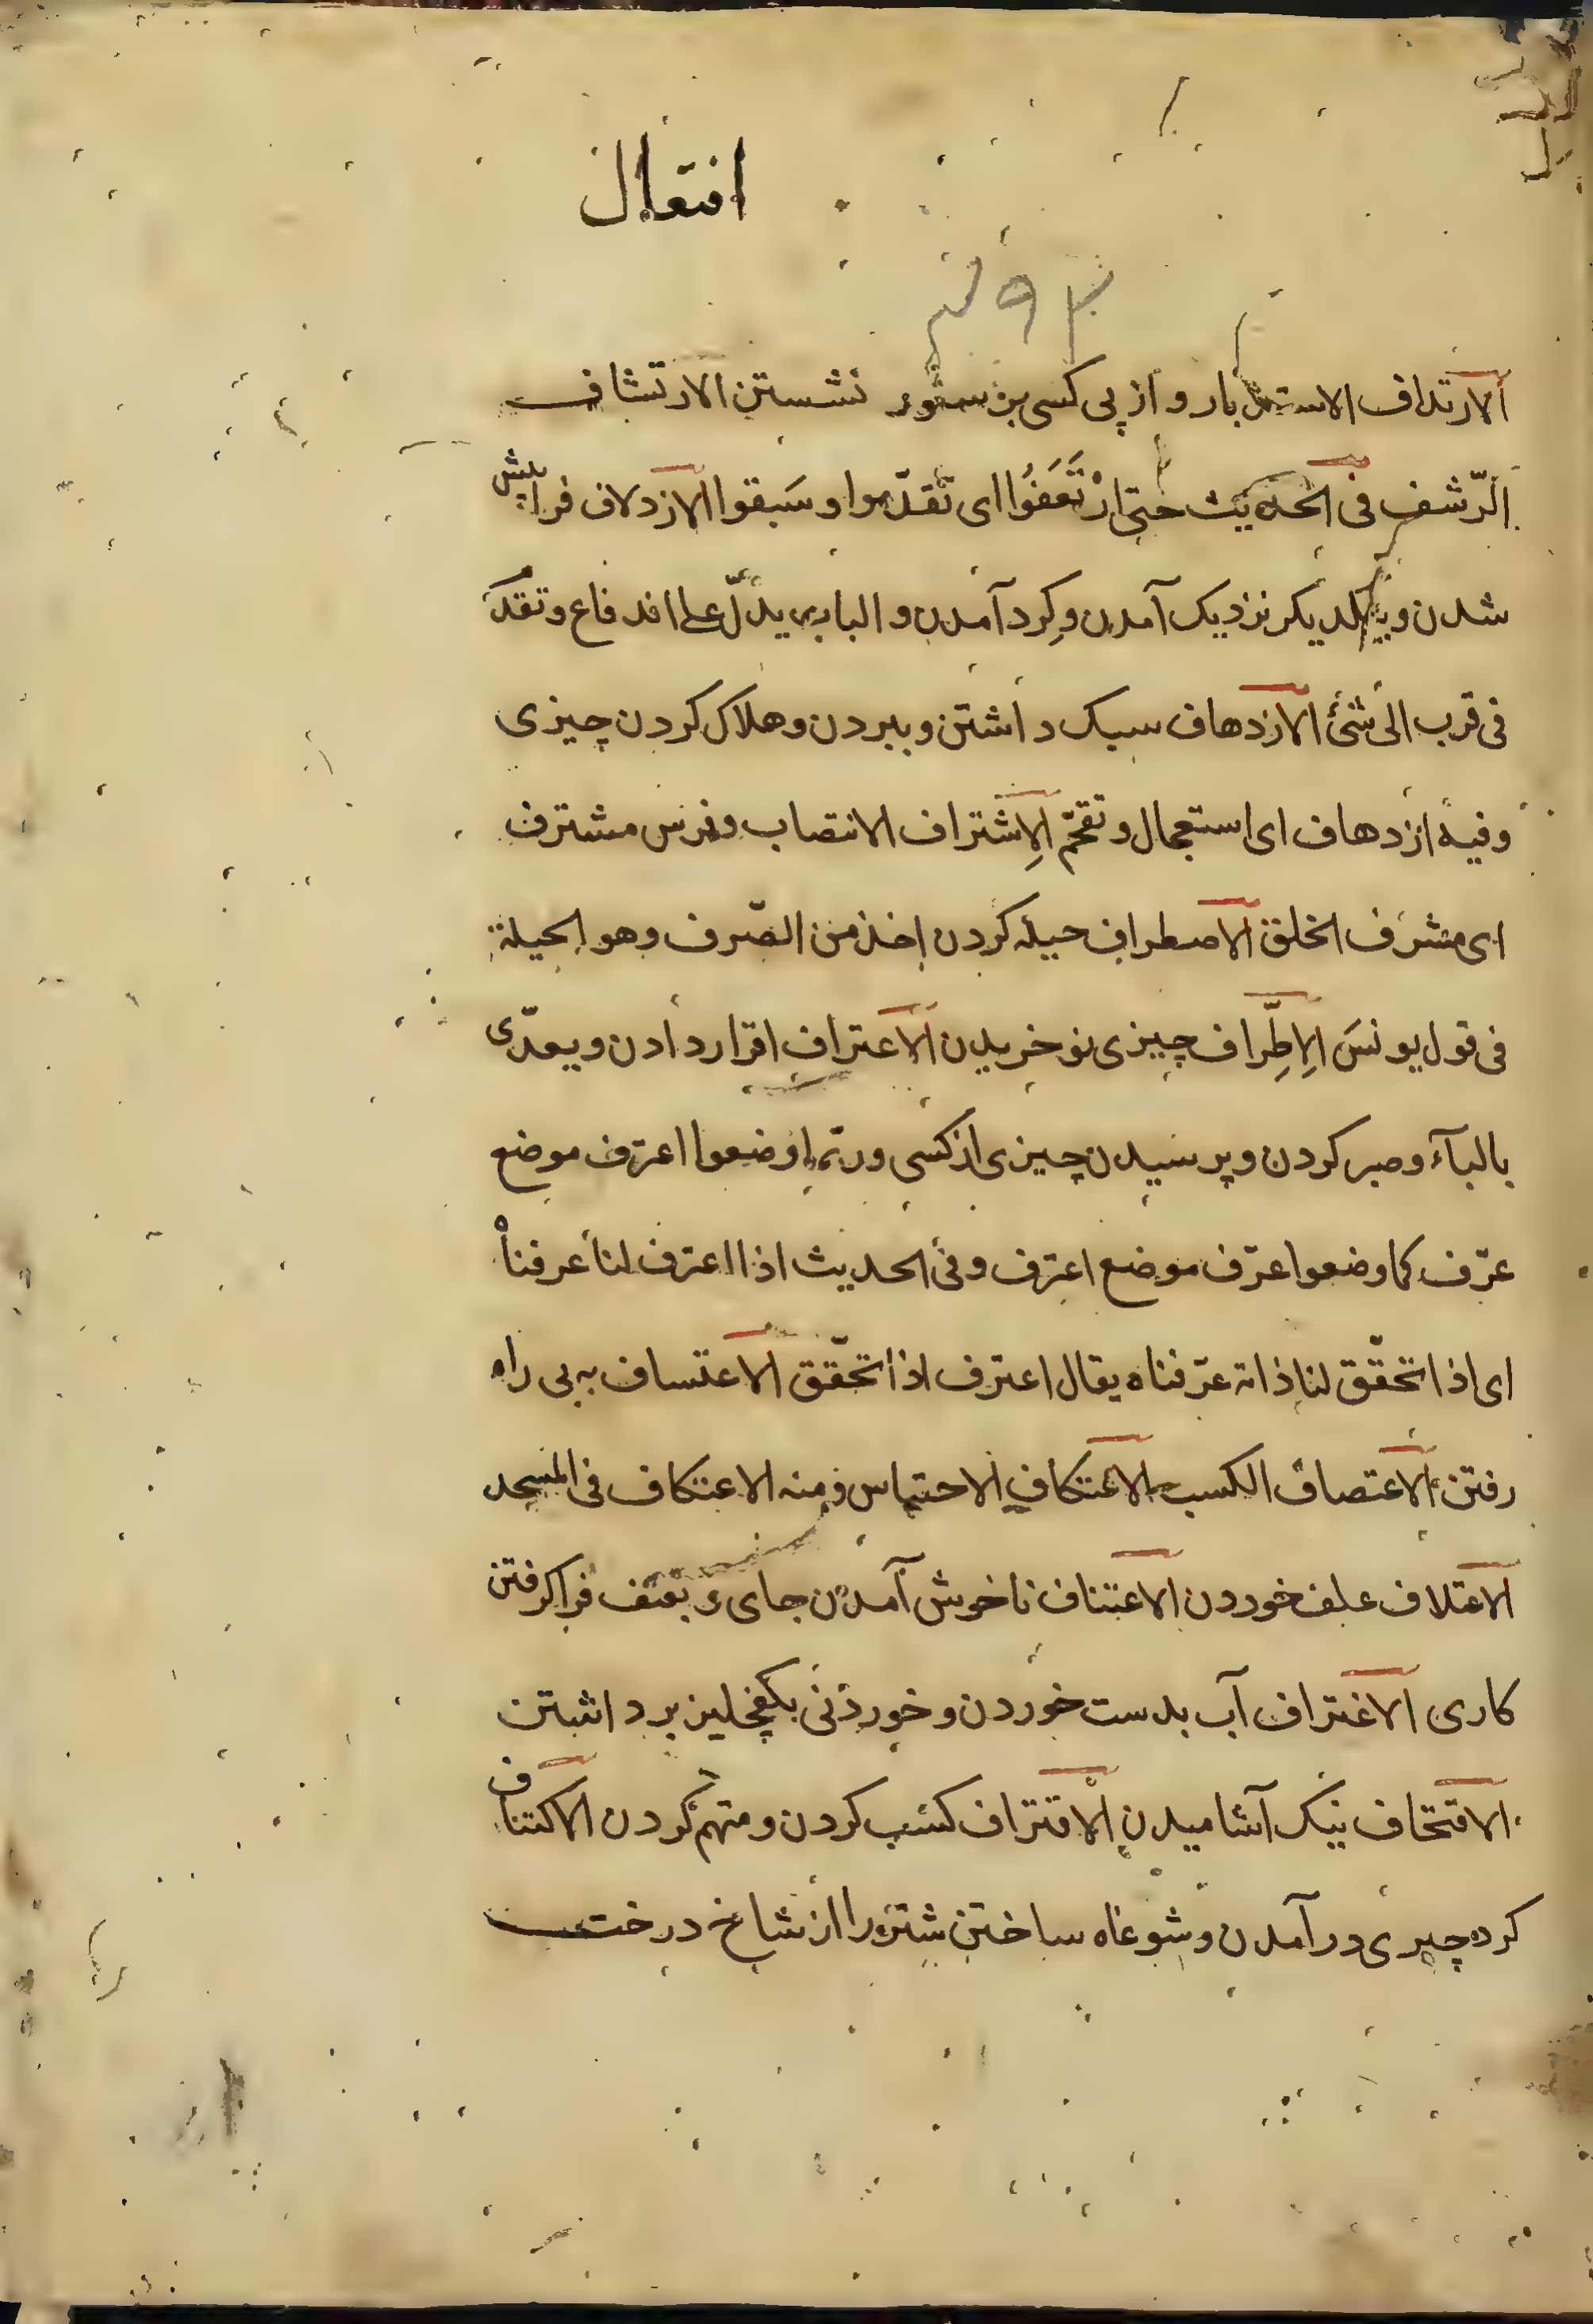 افتعال
الارتداف الاستدبار و از پی کسی بر ستور نشستن الارتشاف
الرّشف فی الحدیث حتی ارْتَعَفُوا ای تقدّموا و سَبقوا الازدلاف فرا پیش
شدن و بیکدیکر نزدیک آمدن و کرد آمدن و الباب یدلّ علی اندفاع و تقدّ
فی قرب الی شئ الازدهاف سبک داشتن و ببردن و هلاک کردن چیزی
وفیه ازدهاف ای استعجال و تقحّم الاِشتراف الانتصاب و فرس مشترف
ای مشرف الخلق الاصطراف حیله کردن اخذ من الصّرف وهو الحیلة
فی قول یونسَ الاِطِّراف چیزی نو خریدن الاعتراف اقرار دادن و یعدّی
بالبآء و صبر کردن و پرسیدن چیزی از کسی و ربّما وضعوا اعترف موضع
عرّف کما وضعوا عرّف موضع اعترف وفی الحدیث اذا اعترف لنا عرفناه
ای اذا تحقّق لنا ذاته عرّفناه یقال اعترف اذا تحقّق الاعتساف به بی راه
رفتن الاعتصاف الکسب الاعتکاف الاحتباس و منه الاعتکاف فی المسجد
الاعتلاف علف خوردن الاعتناف ناخوش آمدن جای و بعنف فرا کرفتن
کاری الاغتراف آب بدست خوردن و خوردنی بکفچلیز برداشتن
الاقتحاف نیک آشامیدن الاقتراف کسب کردن و متهم کردن الاکتناف
کرد چیزی در آمدن و شوغاه ساختن شتر را از شاخ درخت